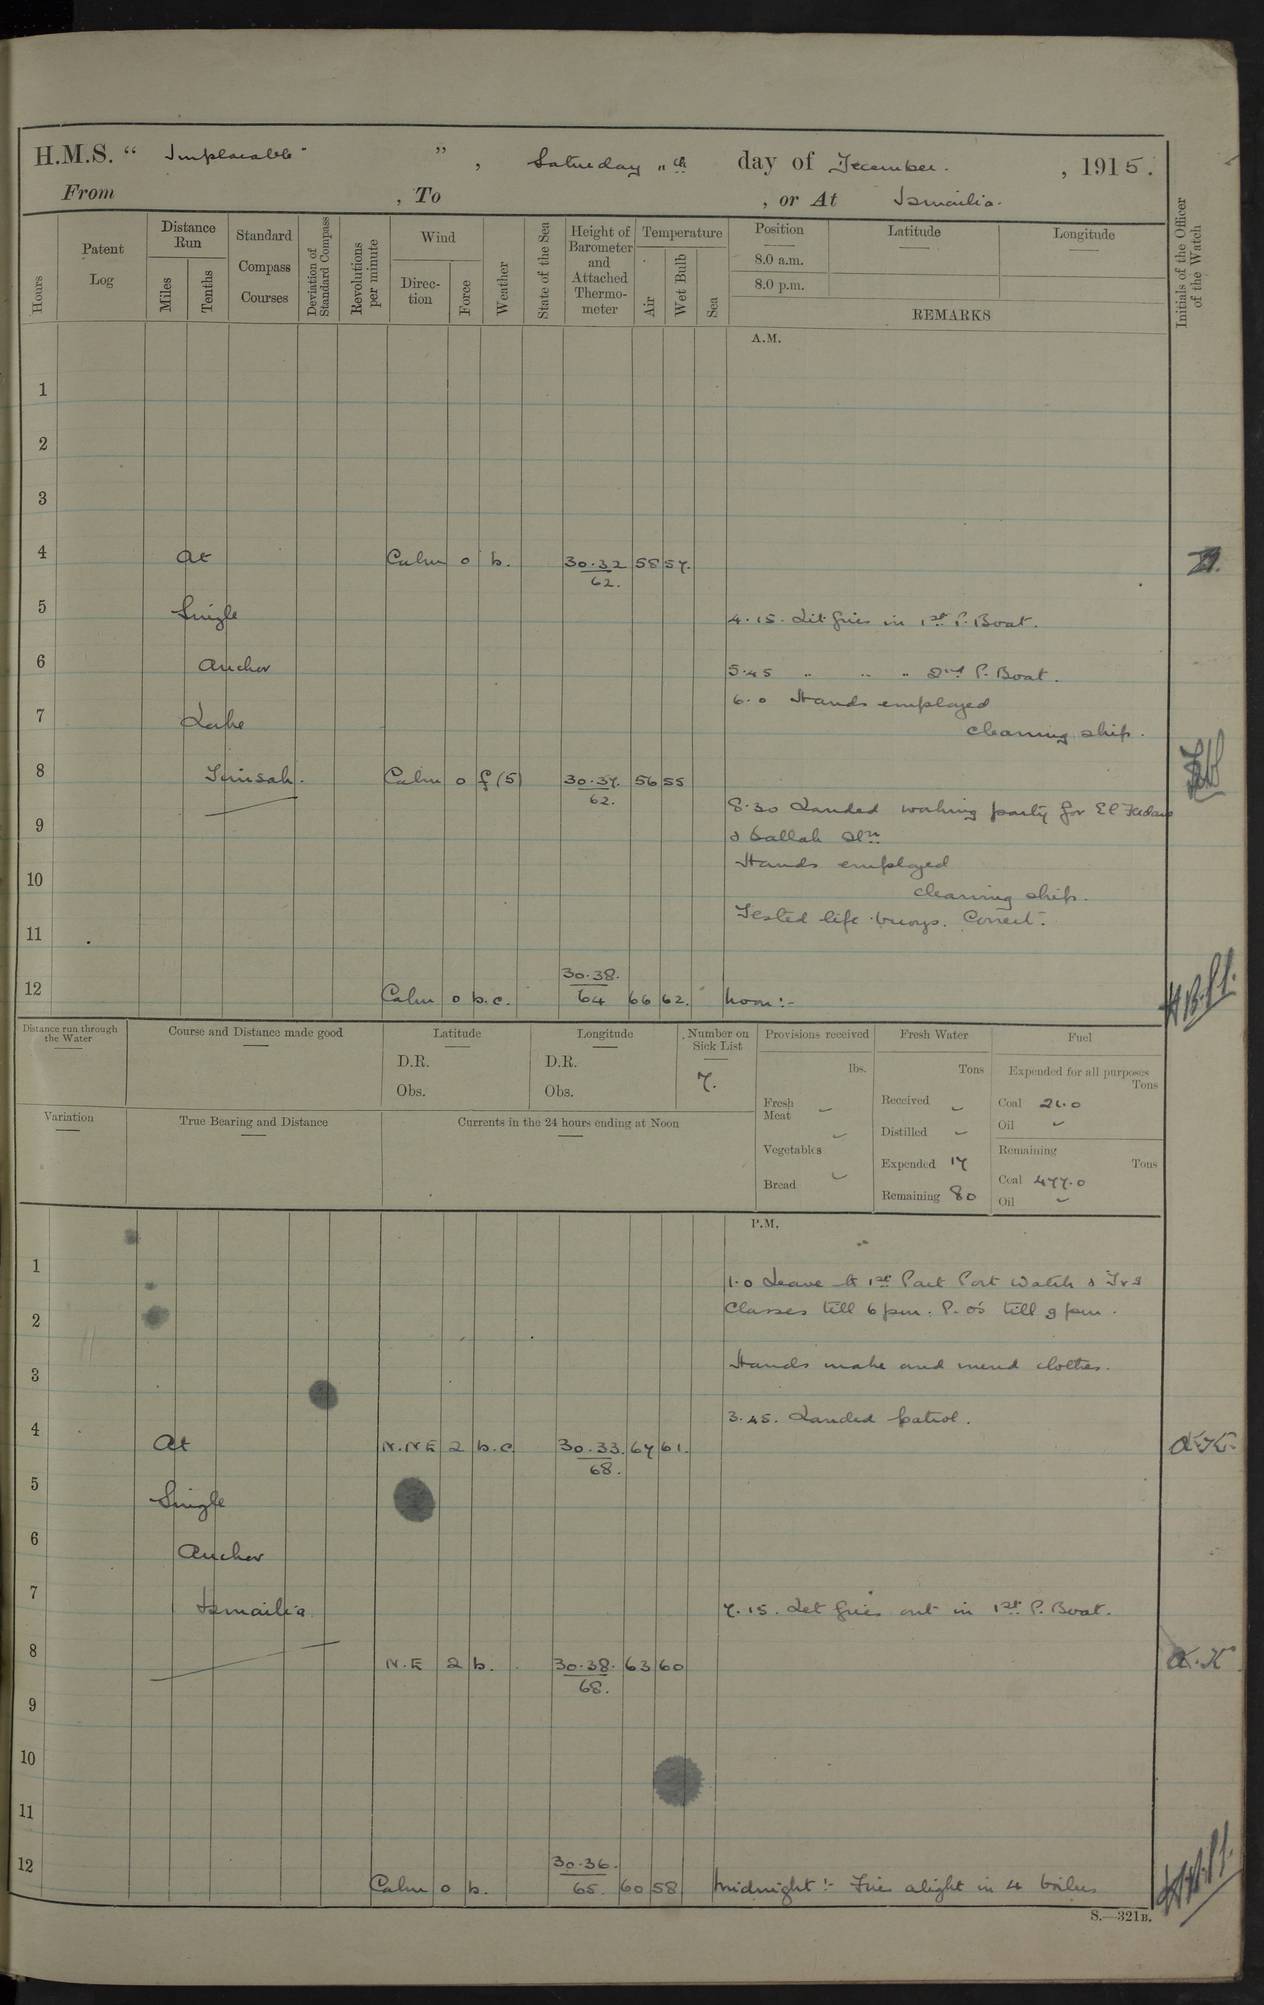 H.M.S. “ Implacable ” , Saturday 11th day of December. , 1915.
From , To , or At Ismailia.
Hours
Patent Log
Distance Run
Miles
Tenths
Standard Compass Courses
Deviation of Standard Compass
Revolutions per minute
Wind
Direction
Force
Weather
State of the Sea
Height of Barometer and Attached Thermometer
Temperature
Air
Wet Bulb
Sea
Position
8.0 a.m.
8.0 p.m.
Latitude
Longitude
REMARKS
Initials of the Officer of the Watch
A.M.
1
2
3
4 At Calm 0 b. 30.32 62. 58 57.
5 Single 4.15. Lit fires in 1st P. Boat.
6 Anchor 5.45 " " " 2nd P. Boat.
6.0 Hands employed
7 Lake cleaning ship.
8 Timsah. Calm 0 f (5) 30.37. 62. 56 55
8.30 Landed working party for El Ferdan
9 & Ballah Stn
Hands employed
10 cleaning ship.
Tested life buoys. Correct.
11
12 Calm 0 b.c. 30.38. 64 66 62. Noon:- H.B.
Distance run through the Water
Course and Distance made good
Latitude
D.R.
Obs.
Longitude
D.R.
Obs.
Number on Sick List
7.
Variation
True Bearing and Distance
Currents in the 24 hours ending at Noon
Provisions received
lbs.
Fresh Meat –
Vegetables –
Bread –
Fresh Water
Tons
Received –
Distilled –
Expended 17
Remaining 80
Fuel
Expended for all purposes
Tons
Coal 21.0
Oil –
Remaining
Tons
Coal 477.0
Oil –
P.M.
1 1.0 Leave to 1st Part Port Watch &
2 Classes till 6 pm. P.O's till 9 pm.
3 Hands make and mend clothes.
3.45. Landed patrol.
4 At N.NE 2 b.c 30.33. 68. 67 61. A.K.
5 Single
6 Anchor
7 Ismailia 7.15. Let fires out in 1st P. Boat.
8 N.E 2 b. 30.38. 68. 63 60 A.K
9
10
11
12 Calm 0 b. 30.36. 65. 60 58 Midnight:- Fires alight in 4 boilers
S.—321B.